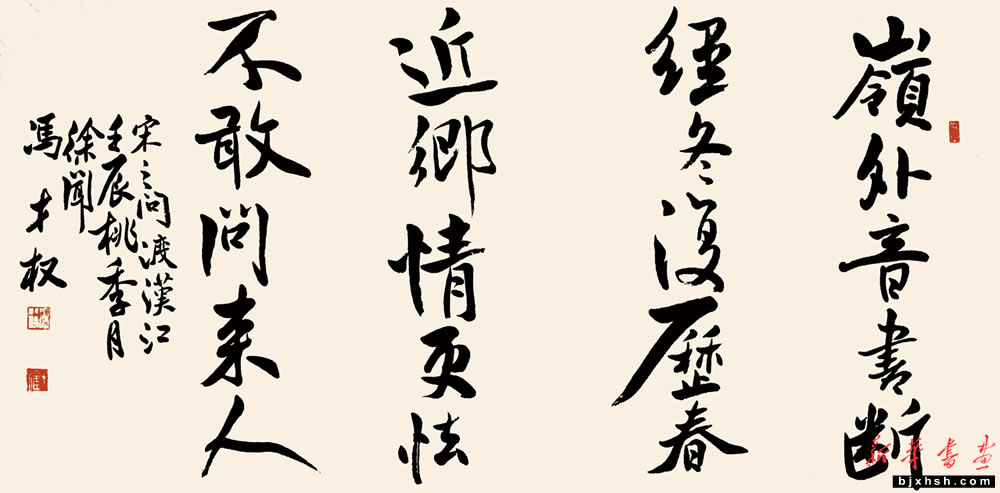 嶺外音書斷
經冬復歷春
近鄉情更怯
不敢問來人
宋之問渡漢江
壬辰桃季月
徐聞
馮才权
新華書画
bjxhsh.com